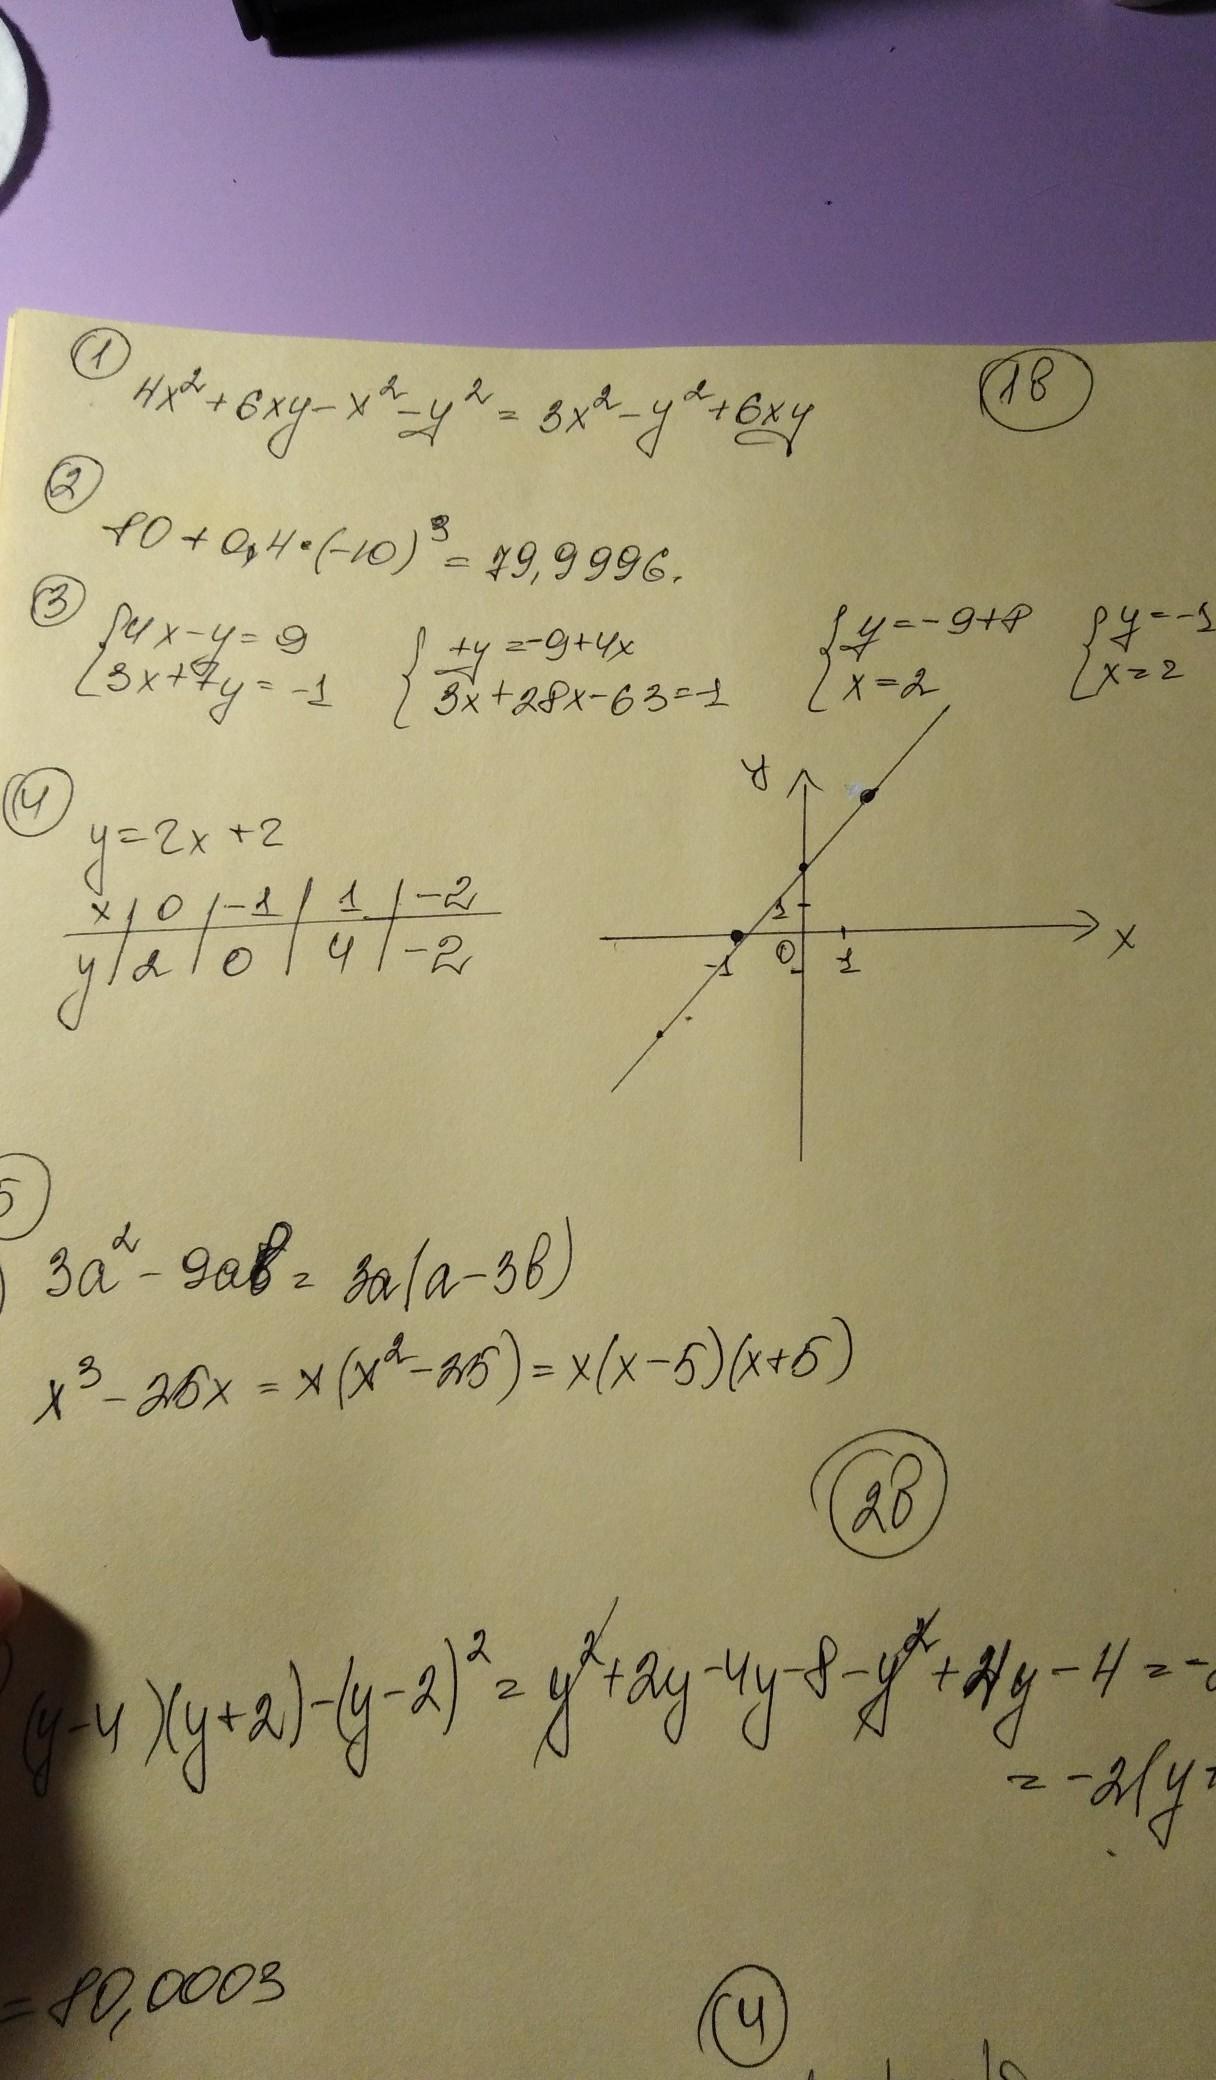 ① 4x² + 6xy - x² - y² = 3x² - y² + 6xy
1в
② 80 + 0,4 · (-10)³ = 79,9996.
③ {4x - y = 9 {+y = -9 + 4x {y = -9 + 8 {y = -1
{3x + 7y = -1 {3x + 28x - 63 = -1 {x = 2 {x = 2
④ y = 2x + 2
x | 0 | -1 | 1 | -2
y | 2 | 0 | 4 | -2
y
1
-1 0 1 x
5
3a² - 9aв = 3a(a - 3в)
x³ - 25x = x(x² - 25) = x(x - 5)(x + 5)
2в
(y - 4)(y + 2) - (y - 2)² = y² + 2y - 4y - 8 - y² + 4y - 4 = -
= -2(y
= 80,0003
④